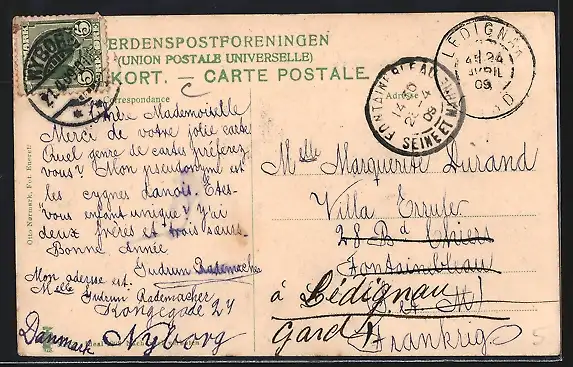 VERDENSPOSTFORENINGEN
(UNION POSTALE UNIVERSELLE)
KORT. — CARTE POSTALE
Correspondance
Chère Mademoiselle
Merci de votre jolie carte
Quel genre de carte préferez
vous? Mon pseudonyme est
les cygnes danois. Étes-
vous enfant unique? J'ai
deux frères et trois sœurs.
Bonne Année
Gudrun Rademacher
Mon adresse est.
Mlle Gudrun Rademacher
Kongegade 24
Nyborg
Danmark
Adresse
Mlle Marguerite Durand
Villa
28 Bd Thiers
Fontainebleau
(S. et M)
à Lédignan
Gard
Frankrig
NYBORG
5
5
LEDIGNAN
24
AVRIL
09
FONTAINEBLEAU
SEINE ET M.
09
Otto Nørmark, Fot. Eneret